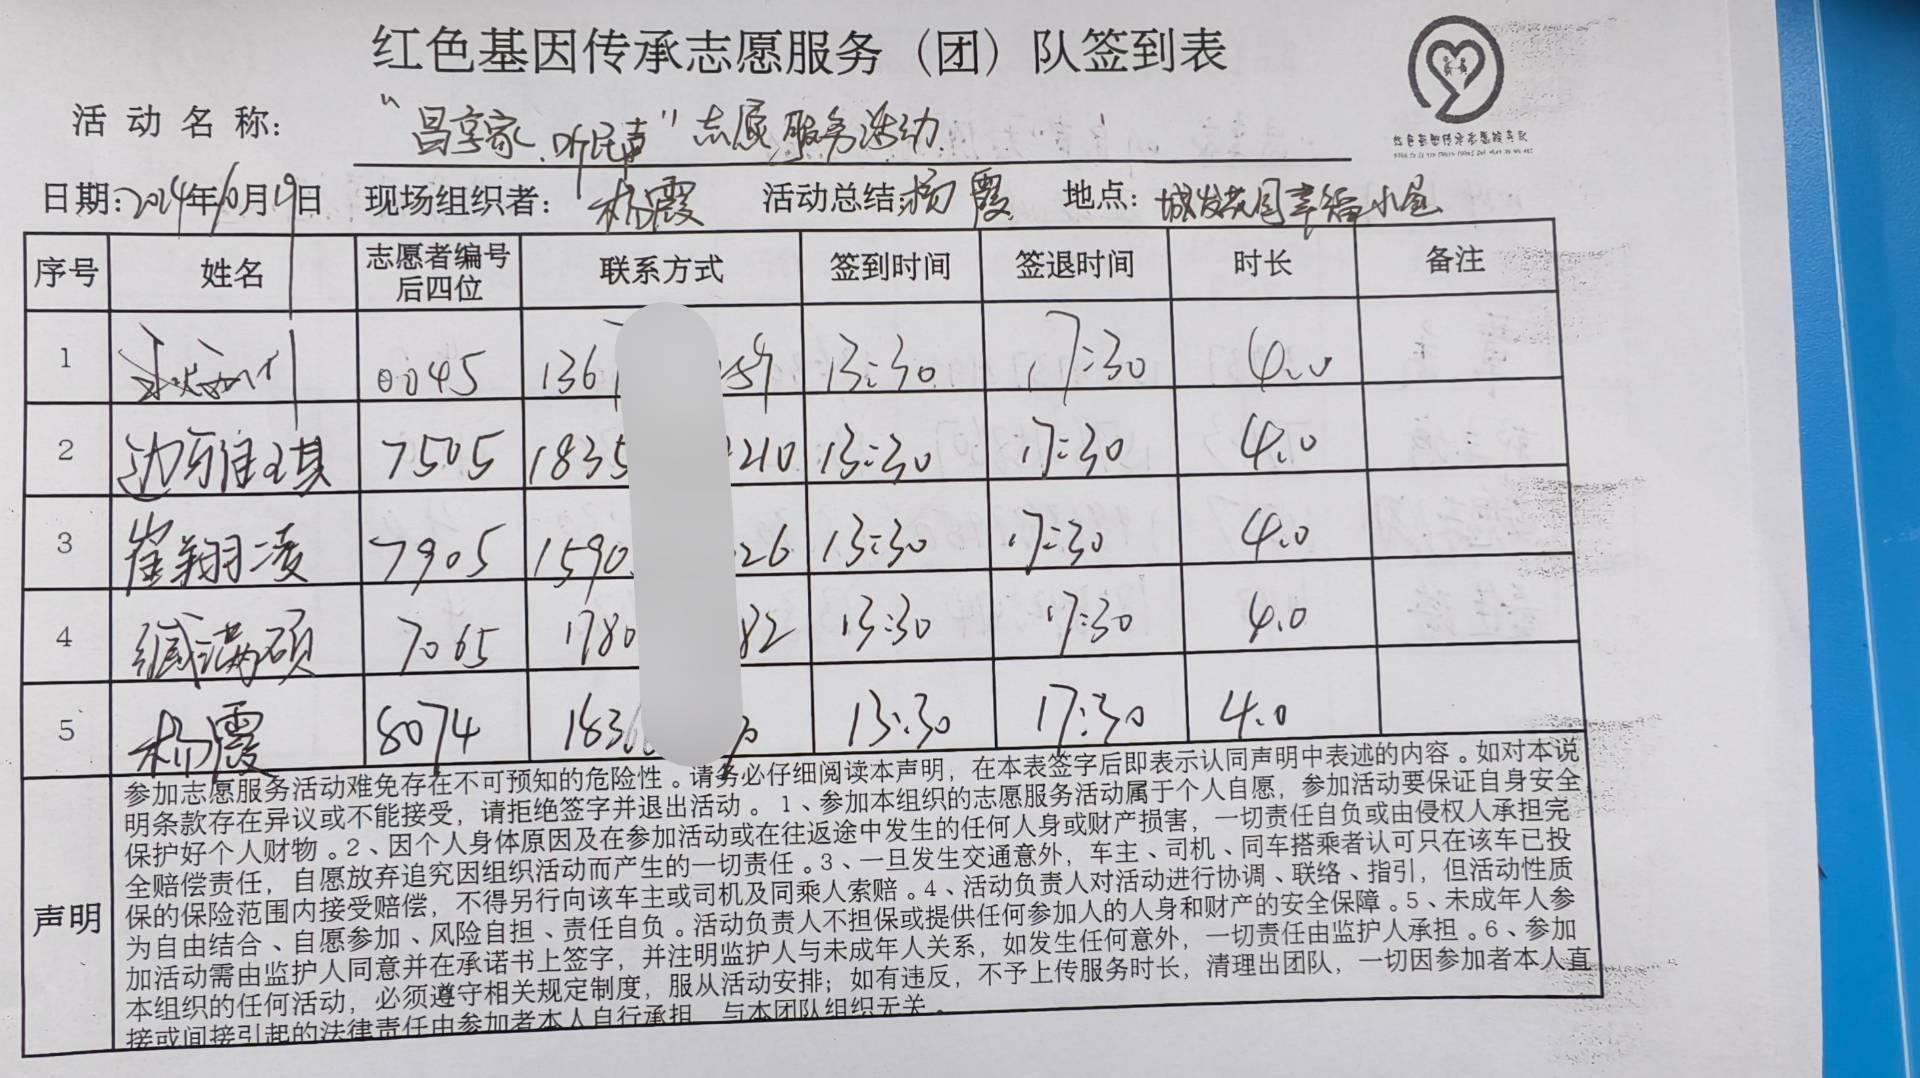 红色基因传承志愿服务（团）队签到表
活动名称: "昌享家、听民声"志愿服务活动
日期: 2024年10月19日 现场组织者: 杨霞 活动总结: 杨霞 地点: 城发花园幸福小区
序号 姓名 志愿者编号后四位 联系方式 签到时间 签退时间 时长 备注
1 0045 136 59 13:30 17:30 4.0
2 边雅琪 7505 1835 210 13:30 17:30 4.0
3 崔翔凌 7905 1590 26 13:30 17:30 4.0
4 臧满硕 7065 1780 82 13:30 17:30 4.0
5 杨霞 8074 183 13:30 17:30 4.0
声明
参加志愿服务活动难免存在不可预知的危险性。请务必仔细阅读本声明，在本表签字后即表示认同声明中表述的内容。如对本说
明条款存在异议或不能接受，请拒绝签字并退出活动。1、参加本组织的志愿服务活动属于个人自愿，参加活动要保证自身安全
保护好个人财物。2、因个人身体原因及在参加活动或在往返途中发生的任何人身或财产损害，一切责任自负或由侵权人承担完
全赔偿责任，自愿放弃追究因组织活动而产生的一切责任。3、一旦发生交通意外，车主、司机、同车搭乘者认可只在该车已投
保的保险范围内接受赔偿，不得另行向该车主或司机及同乘人索赔。4、活动负责人对活动进行协调、联络、指引，但活动性质
为自由结合、自愿参加、风险自担、责任自负。活动负责人不担保或提供任何参加人的人身和财产的安全保障。5、未成年人参
加活动需由监护人同意并在承诺书上签字，并注明监护人与未成年人关系，如发生任何意外，一切责任由监护人承担。6、参加
本组织的任何活动，必须遵守相关规定制度，服从活动安排；如有违反，不予上传服务时长，清理出团队，一切因参加者本人直
接或间接引起的法律责任由参加者本人自行承担，与本团队组织无关。